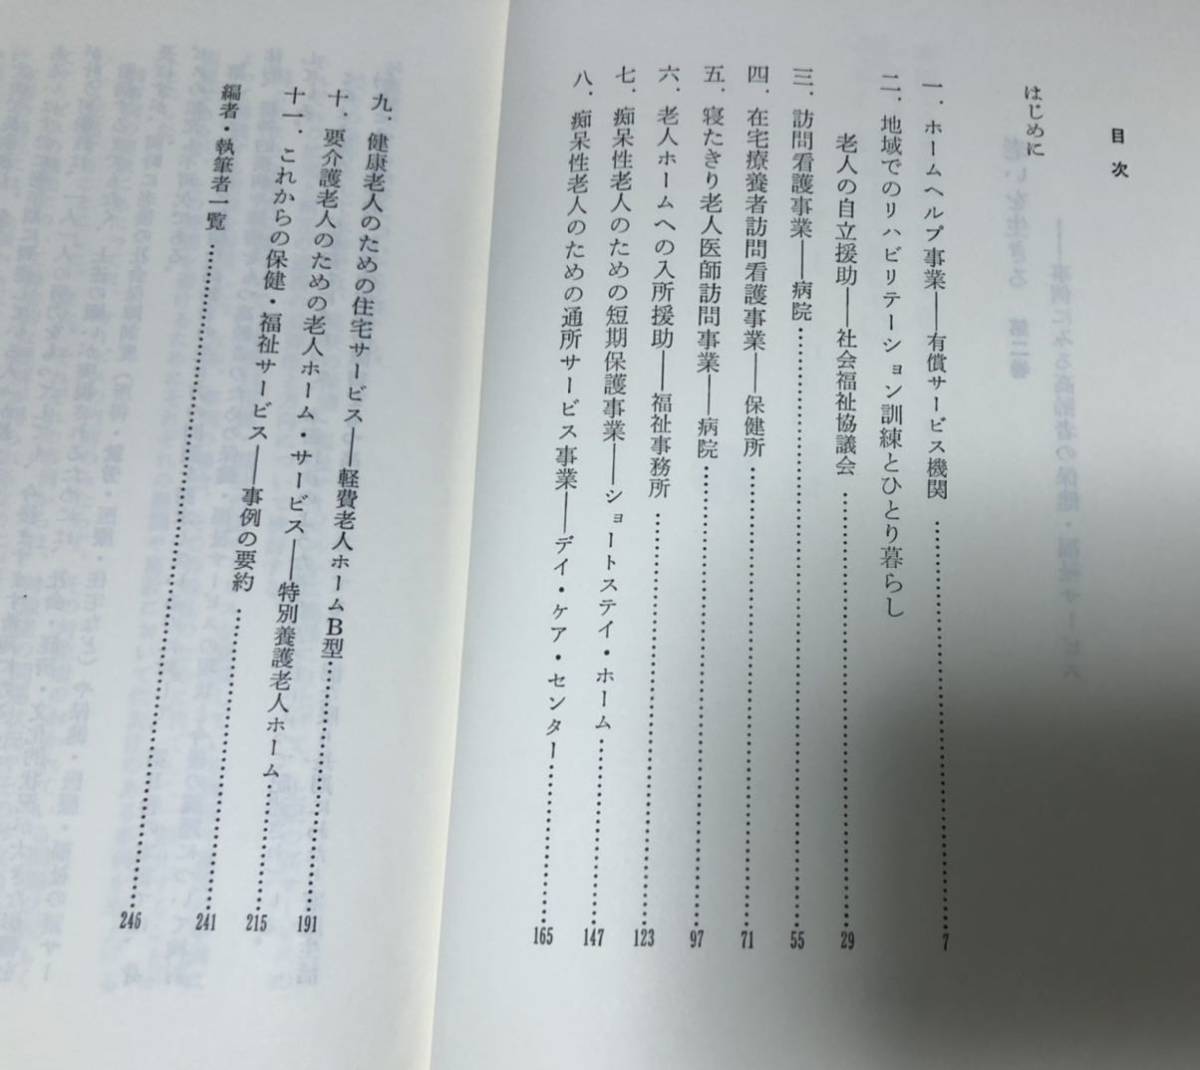 目次
はじめに
一、ホームヘルプ事業――有償サービス機関……………………7
二、地域でのリハビリテーション訓練とひとり暮らし
老人の自立援助――社会福祉協議会……………………29
三、訪問看護事業――病院……………………55
四、在宅療養者訪問看護事業――保健所……………………71
五、寝たきり老人医師訪問事業――病院……………………97
六、老人ホームへの入所援助――福祉事務所……………………123
七、痴呆性老人のための短期保護事業――ショートステイ・ホーム……………………147
八、痴呆性老人のための通所サービス事業――デイ・ケア・センター……………………165
九、健康老人のための住宅サービス――軽費老人ホームB型……………………191
十、要介護老人のための老人ホーム・サービス――特別養護老人ホーム……………………215
十一、これからの保健・福祉サービス――事例の要約……………………241
編者・執筆者一覧……………………246